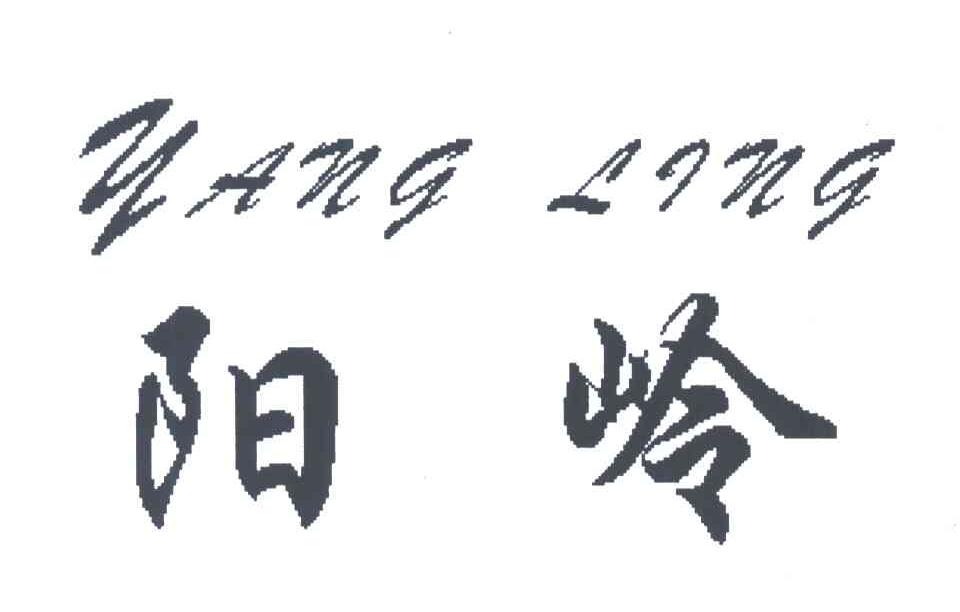 YANG LING
阳岭